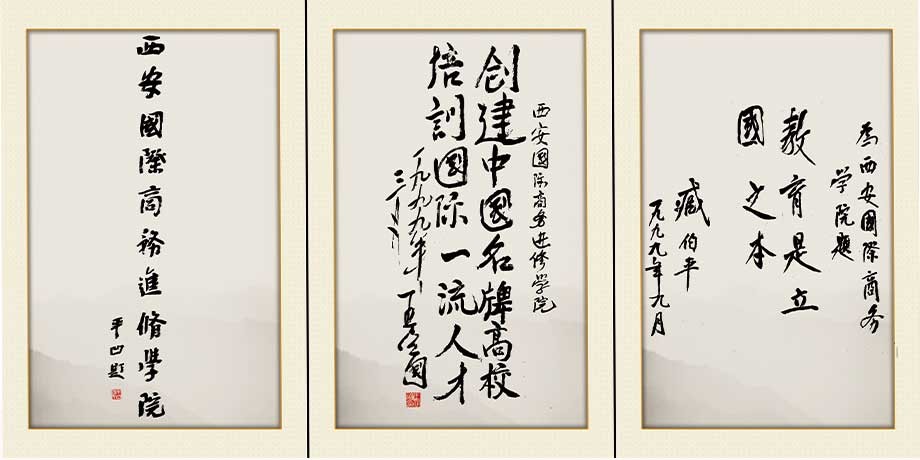 西安國際商務進脩學院
平凹題
西安國际商务进修學院
创建中國名牌高校
培訓國际一流人才
一九九九年
為西安國際商务
学院題
教育是立
國之本
臧伯平
一九九九年九月